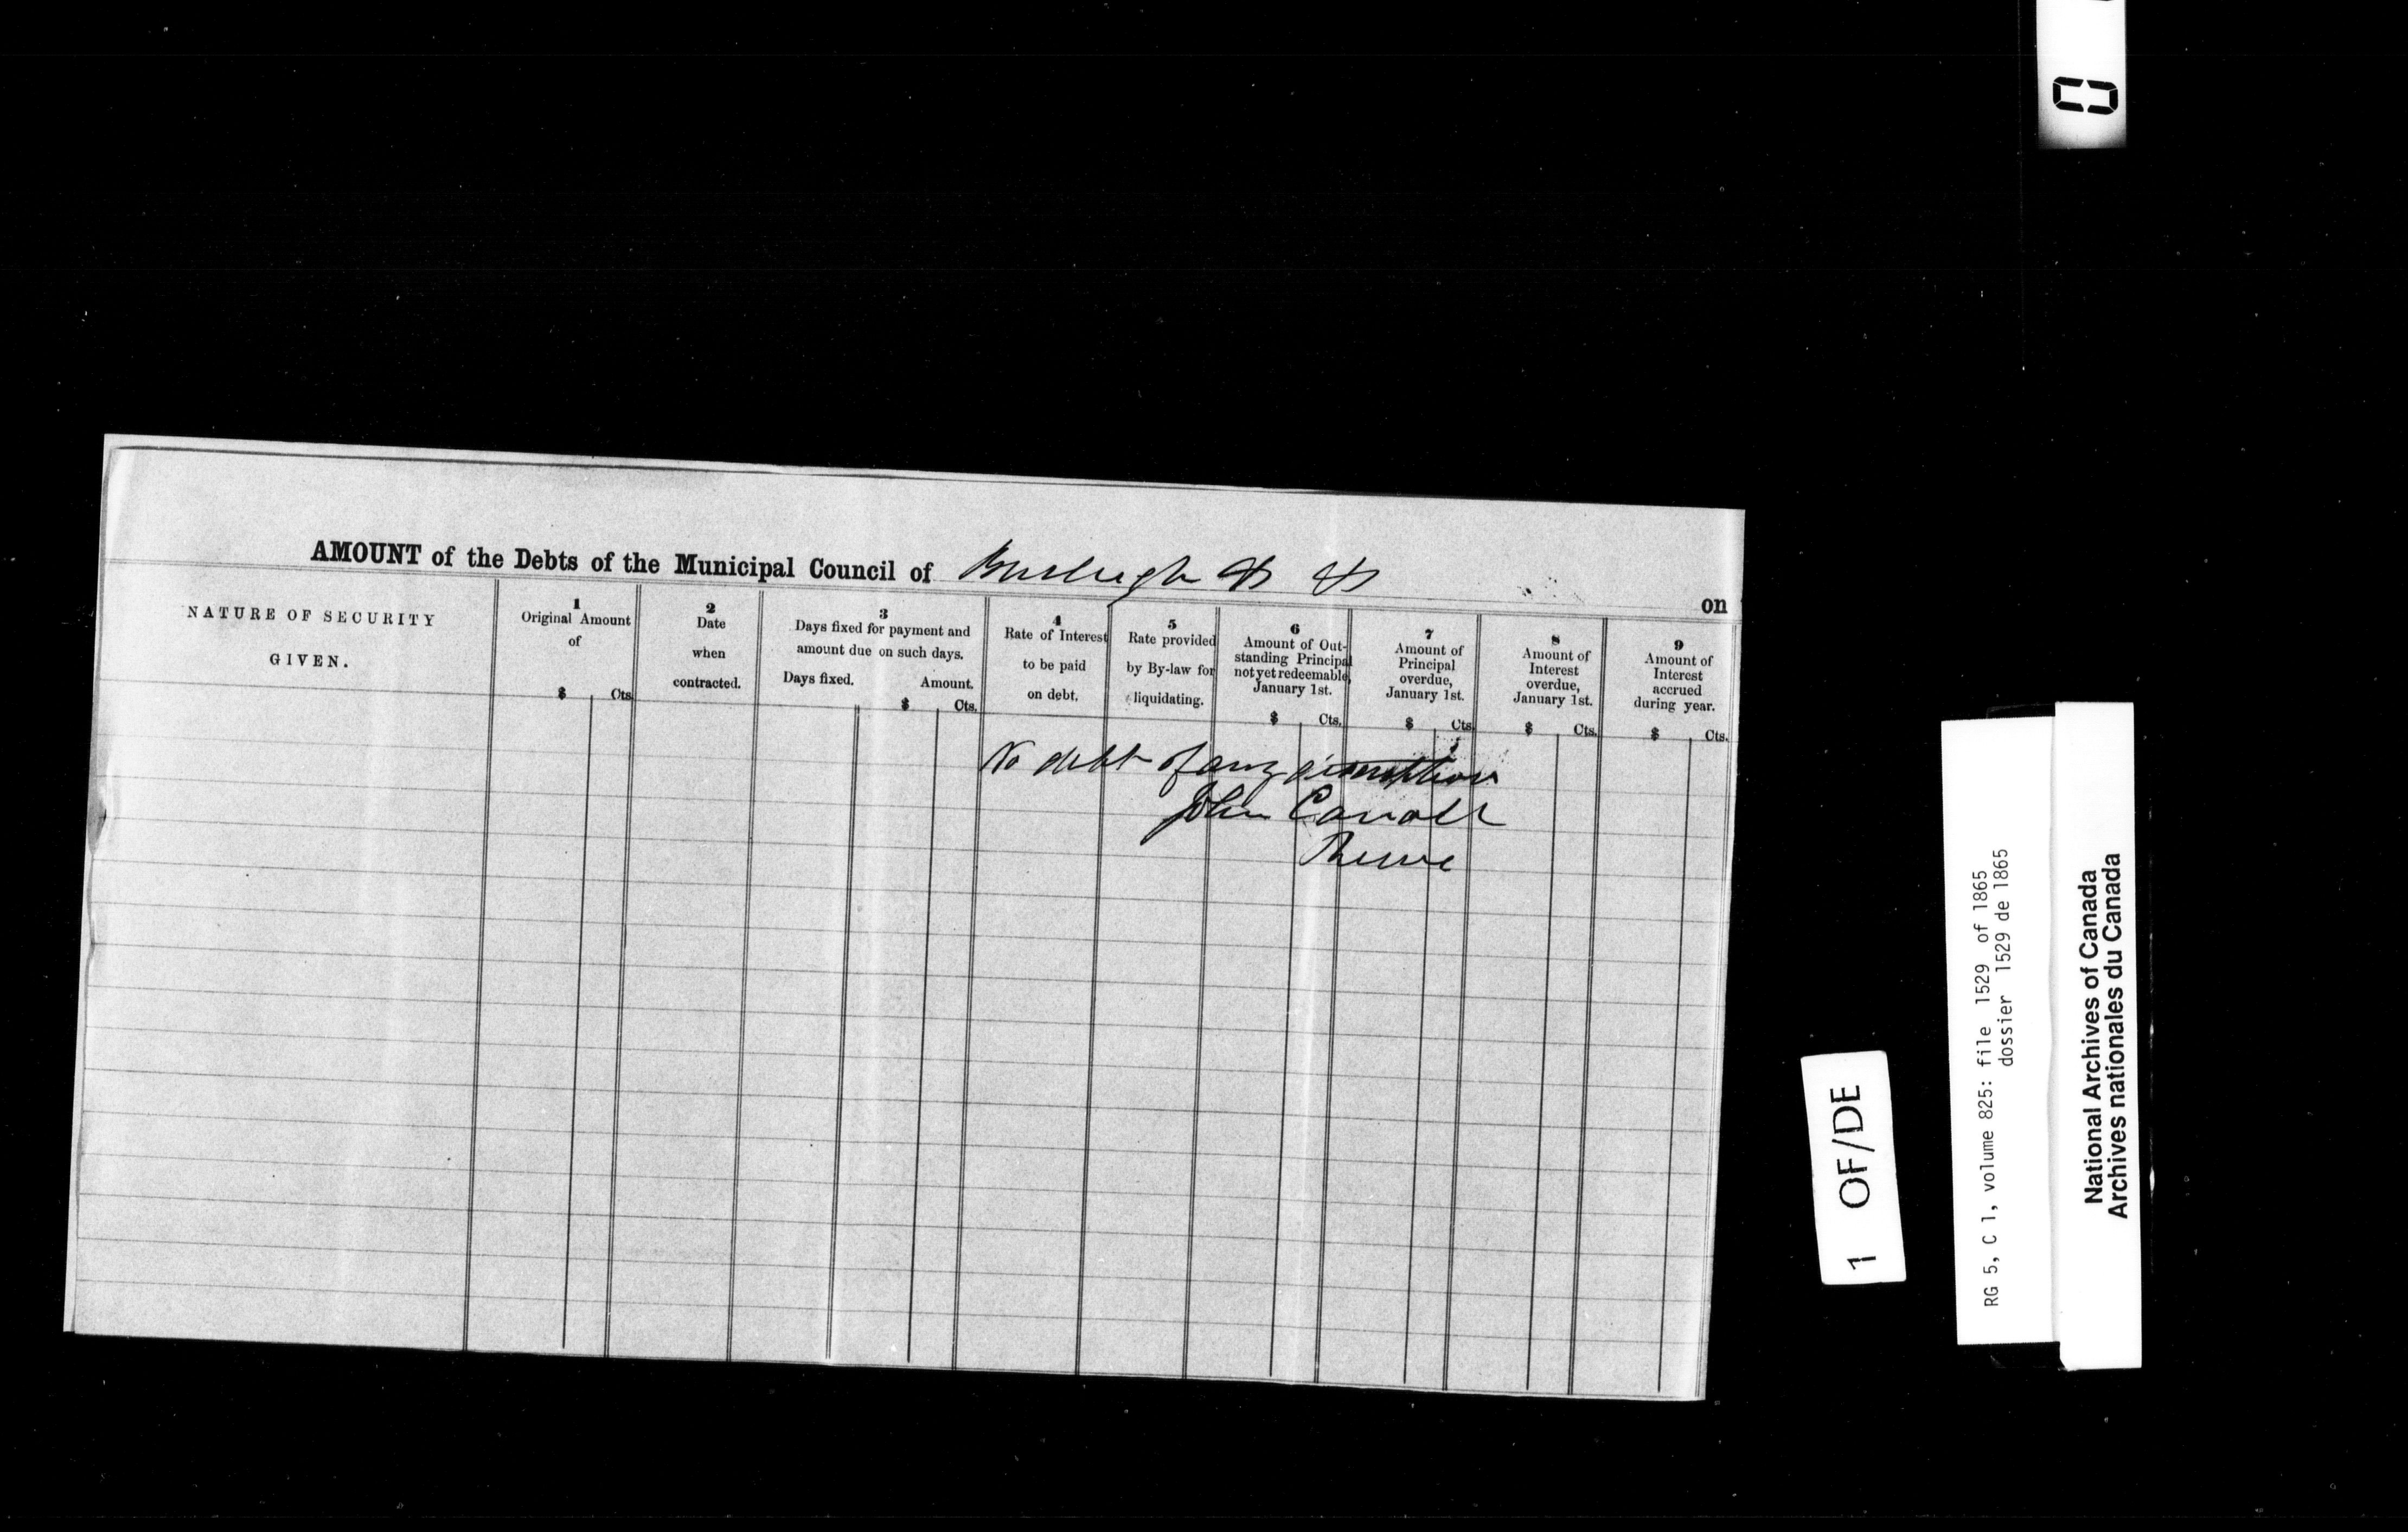 AMOUNT of the Debts of the Municipal Council of Burleigh & & on
NATURE OF SECURITY
GIVEN.
1
Original Amount
of
$ Cts
2
Date
when
contracted.
3
Days fixed for payment and
amount due on such days.
Days fixed. Amount.
$ Cts.
4
Rate of Interest
to be paid
on debt.
5
Rate provided
by By-law for
liquidating.
6
Amount of Out-
standing Principal
not yet redeemable,
January 1st.
$ Cts.
7
Amount of
Principal
overdue,
January 1st.
$ Cts
8
Amount of
Interest
overdue,
January 1st.
$ Cts.
9
Amount of
Interest
accrued
during year.
$ Cts.
No debt of any
John Carroll
Reeve
1 OF/DE
RG 5, C 1, volume 825: file 1529 of 1865
dossier 1529 de 1865
National Archives of Canada
Archives nationales du Canada
0